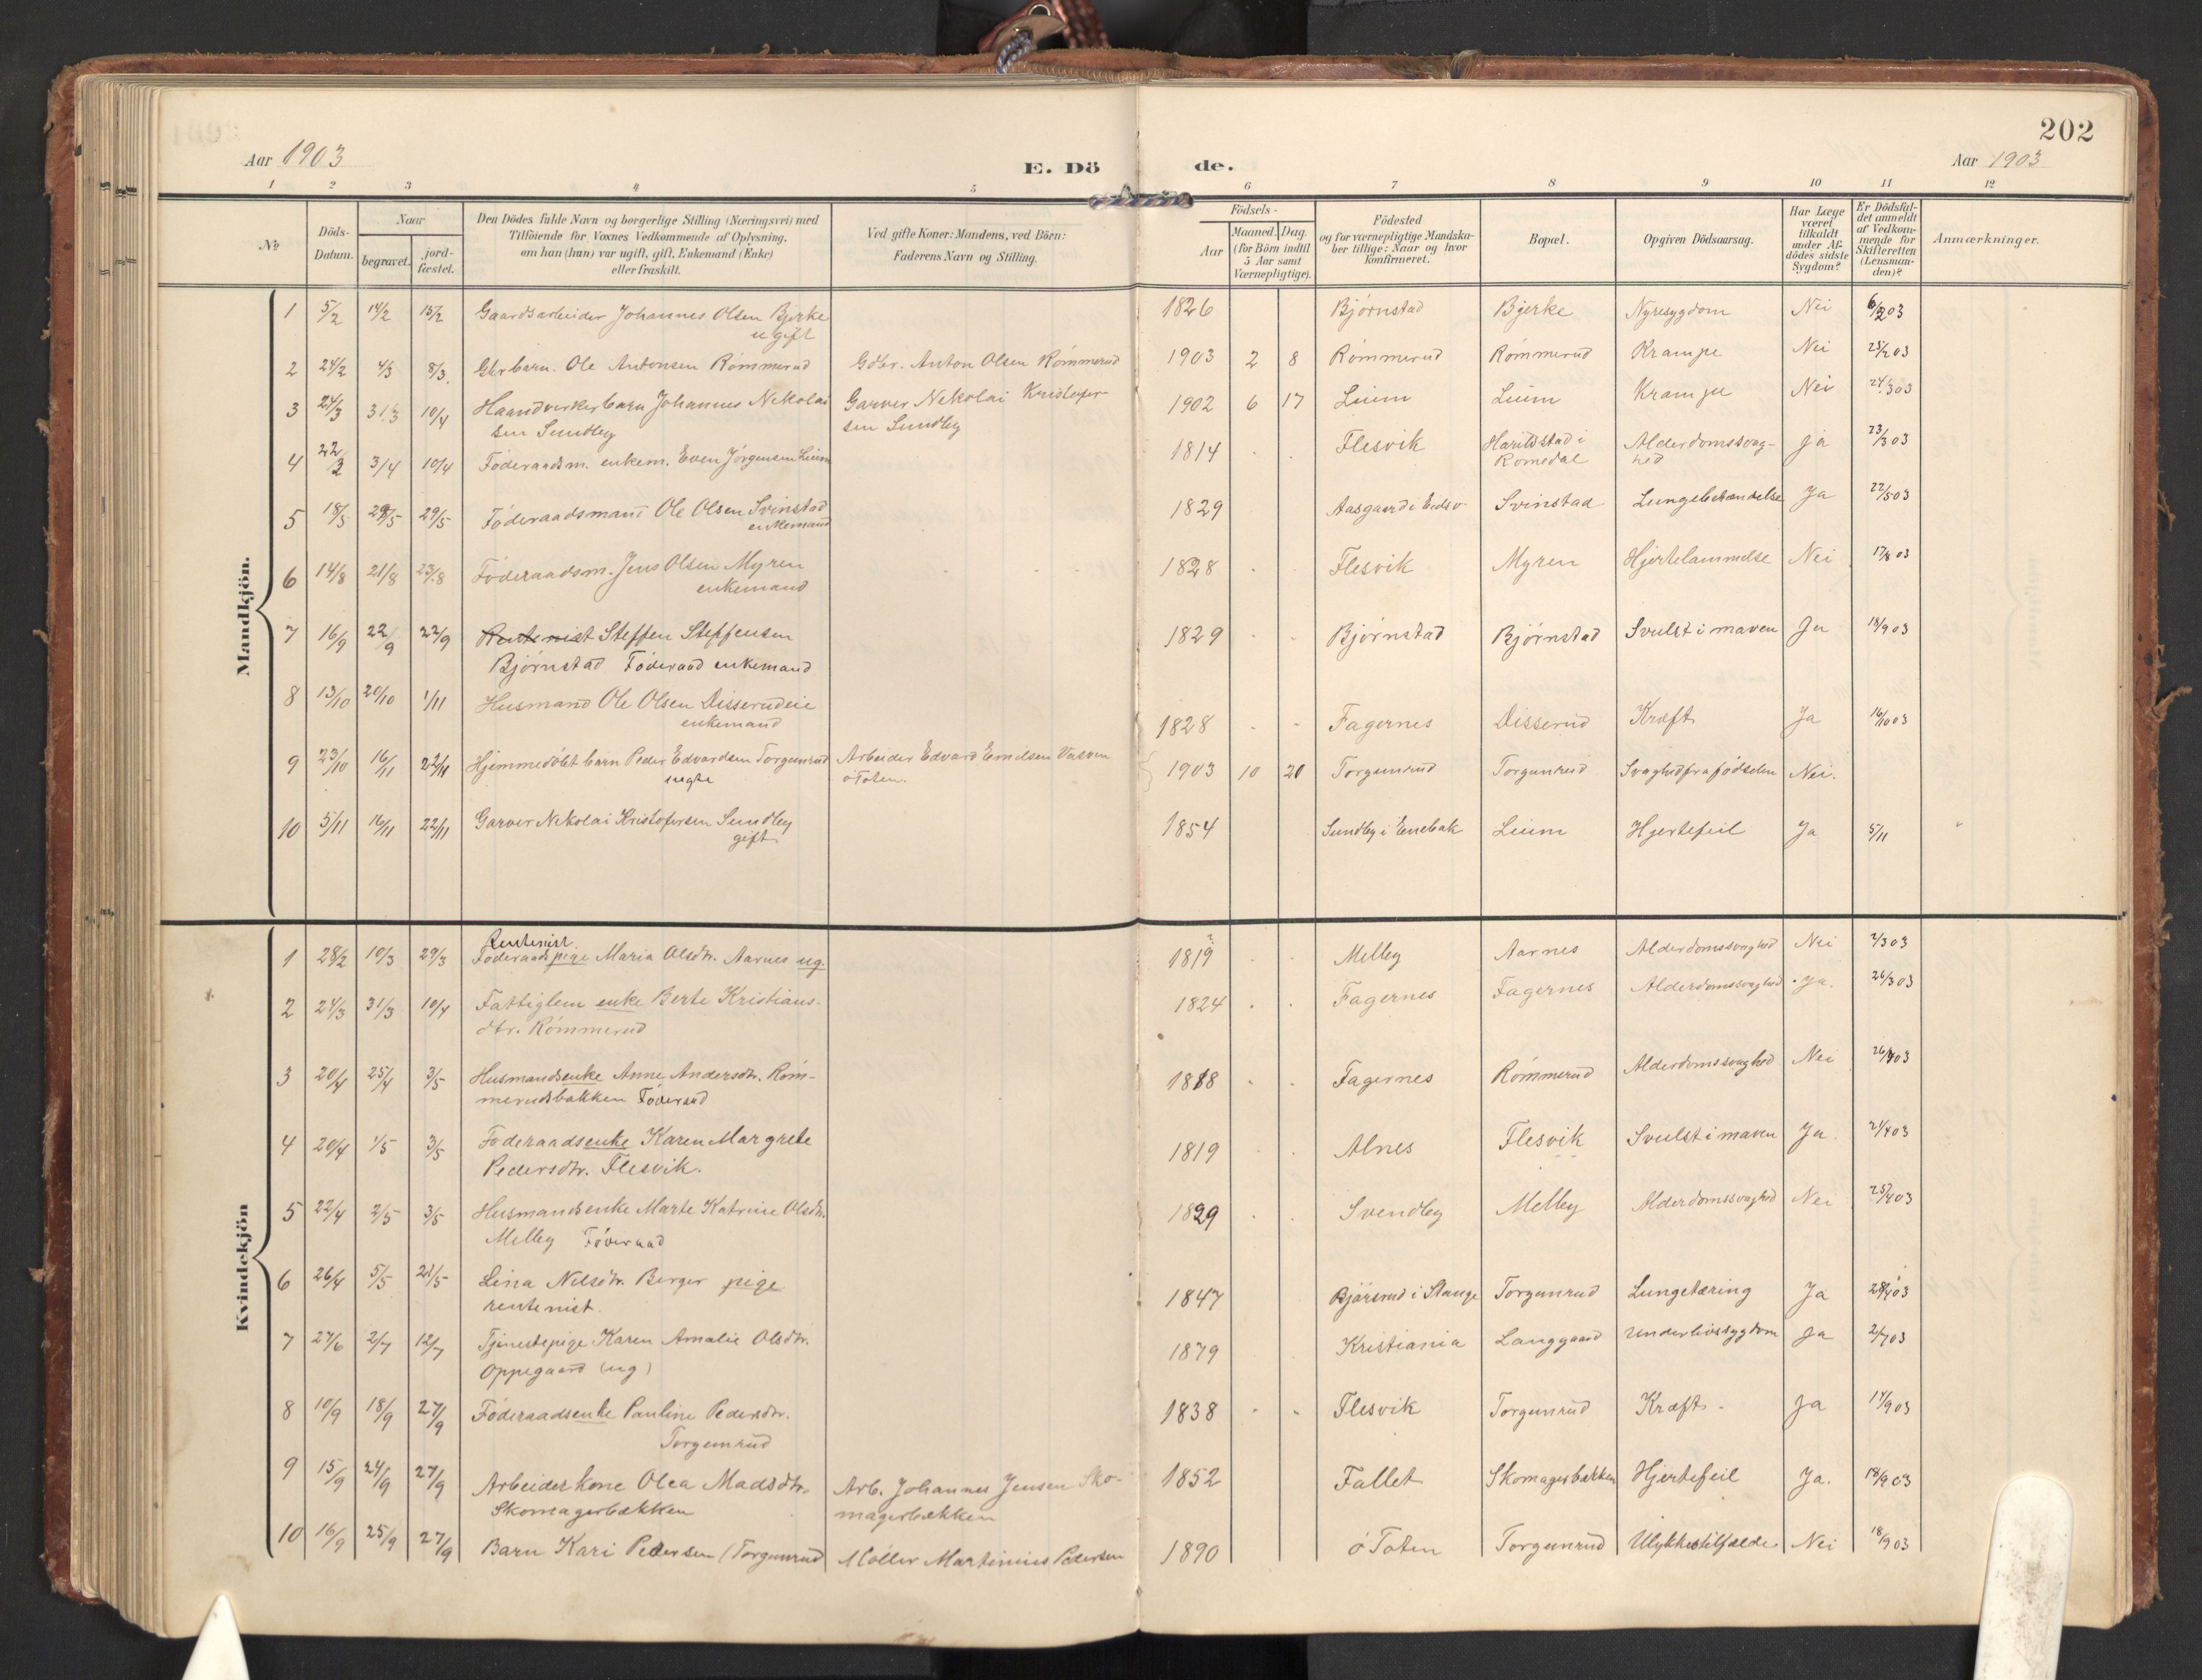 202
Aar 1903
E. Dö
de.
Aar 1903
1 2 3 4 5 6 7 8 9 10 11 12
No
Döds-
Datum.
Naar
begravet.
jord-
fæstet.
Den Dödes fulde Navn og borgerlige Stilling (Næringsvei) med
Tilföiende for Voxnes Vedkommende af Oplysning,
om han (hun) var ugift, gift, Enkemand (Enke)
eller fraskilt.
Ved gifte Koner: Mandens, ved Börn:
Faderens Navn og Stilling.
Födsels-
Aar
Maaned. Dag.
(for Börn indtil
5 Aar samt
Værnepligtige).
Födested
og for værnepligtige Mandska-
ber tillige: Naar og hvor
konfirmeret.
Bopæl.
Opgiven Dödsaarsag.
Har Læge
været
tilkaldt
under Af-
dödes sidste
Sygdom?
Er Dödsfal-
det anmeldt
af Vedkom-
mende for
Skifteretten
(Lensman-
den)?
Anmærkninger.
Mandkjön.
1 5/2 14/2 15/2 Gaardsarbeider Johannes Olsen Bjerke 1826 Bjørnstad Bjerke Nyresygdom Nei 6/2 03
ugift
2 24/2 4/3 8/3. Gbrbarn. Ole Antonsen Rømmerud Gdbr. Anton Olsen Rømmerud 1903 2 8 Rømmerud Rømmerud Krampe Nei 25/2 03
3 24/3 31/3 10/4 Haandverkerbarn Johannes Nekolai Garver Nekolai Kristofer- 1902 6 17 Liium Liium Krampe Nei 24/3 03
sen Sundby sen Sundby
4 22/3 3/4 10/4 Føderaadsm. enkem. Even Jørgensen Liium 1814 Flesvik Harildstad i Alderdomssvag- ja 23/3 03
Romedal hed
5 18/5 29/5 29/5 Føderaadsmand Ole Olsen Svinstad 1829 Aasgaard i Eidsv. Svinstad Lungebetændelse Ja 22/5 03
enkemand
6 14/8 21/8 23/8 Føderaadsm. Jens Olsen Myren 1828 Flesvik Myren Hjertelammelse Nei 17/8 03
enkemand
7 16/9 22/9 22/9 Rentenist Steffen Steffensen 1829 Bjørnstad Bjørnstad Svulst i maven Ja 18/9 03
Bjørnstad Føderaad enkemand
8 13/10 20/10 1/11 Husmand Ole Olsen Disserudeie 1828 Fagernes Disserud Kræft Ja 16/10 03
enkemand
9 23/10 16/11 22/11 Hjemmedøbt barn Peder Edvardsen Torgunrud Arbeider Edvard Emilsen 1903 10 20 Torgunrud Torgunrud Svaghed fra fødselen Nei.
uegte ø Toten.
10 5/11 16/11 22/11 Garver Nekolai Kristofersen Sundby 1854 Sundby i Enebak Liium Hjertefeil Ja 5/11
gift
Kvindekjön
Rentenist.
1 28/2 10/3 29/3 Føderaadspige Maria Olsdtr. Aarnes ug. 1819 ? Melby Aarnes Alderdomssvaghed Nei 2/3 03
2 24/3 31/3 10/4 Fattiglem enke Berte Kristians- 1824 Fagernes Fagernes Alderdomssvaghed Ja. 26/3 03
dtr. Rømmerud
3 20/4 25/4 3/5 Husmandsenke Anne Andersdtr. Røm- 1818 Fagernes Rømmerud Alderdomssvaghed Nei 26/4 03
merudsbakken Føderaad
4 20/4 1/5 3/5 Føderaadsenke Karen Margrete 1819 Alnes Flesvik Svulst i maven Ja. 21/4 03
Pedersdtr. Flesvik.
5 22/4 2/5 3/5 Husmandsenke Marte Katrine Olsdtr. 1829 Svendby Melby Alderdomssvaghed Nei 25/4 03
Melby Føderaad
6 26/4 5/5 21/5 Lina Nelsdtr. Berger pige 1847 i Stange Torgunrud Lungetæring Ja 28/4 03
rentenist.
7 27/6 2/7 12/7 Tjenestepige Karen Amalie Olsdtr. 1879 Kristiania Langgaard Underlivssygdom ja 2/7 03
Oppegaard (ug)
8 10/9 18/9 27/9 Føderaadsenke Pauline Pedersdtr. 1838 Flesvik Torgunrud Kræft Ja 14/9 03
Torgunrud
9 15/9 24/9 27/9 Arbeiderkone Olea Madsdtr. Arb. Johannes Jensen Sko- 1852 Fallet Skomagerbækken Hjertefeil Ja. 18/9 03
Skomagerbækken magerbækken
10 16/9 25/9 27/9 Barn Kari Pedersen (Torgunrud Møller Martinius Pedersen 1890 ø Toten Torgunrud Ulykkestilfælde Nei 18/9 03